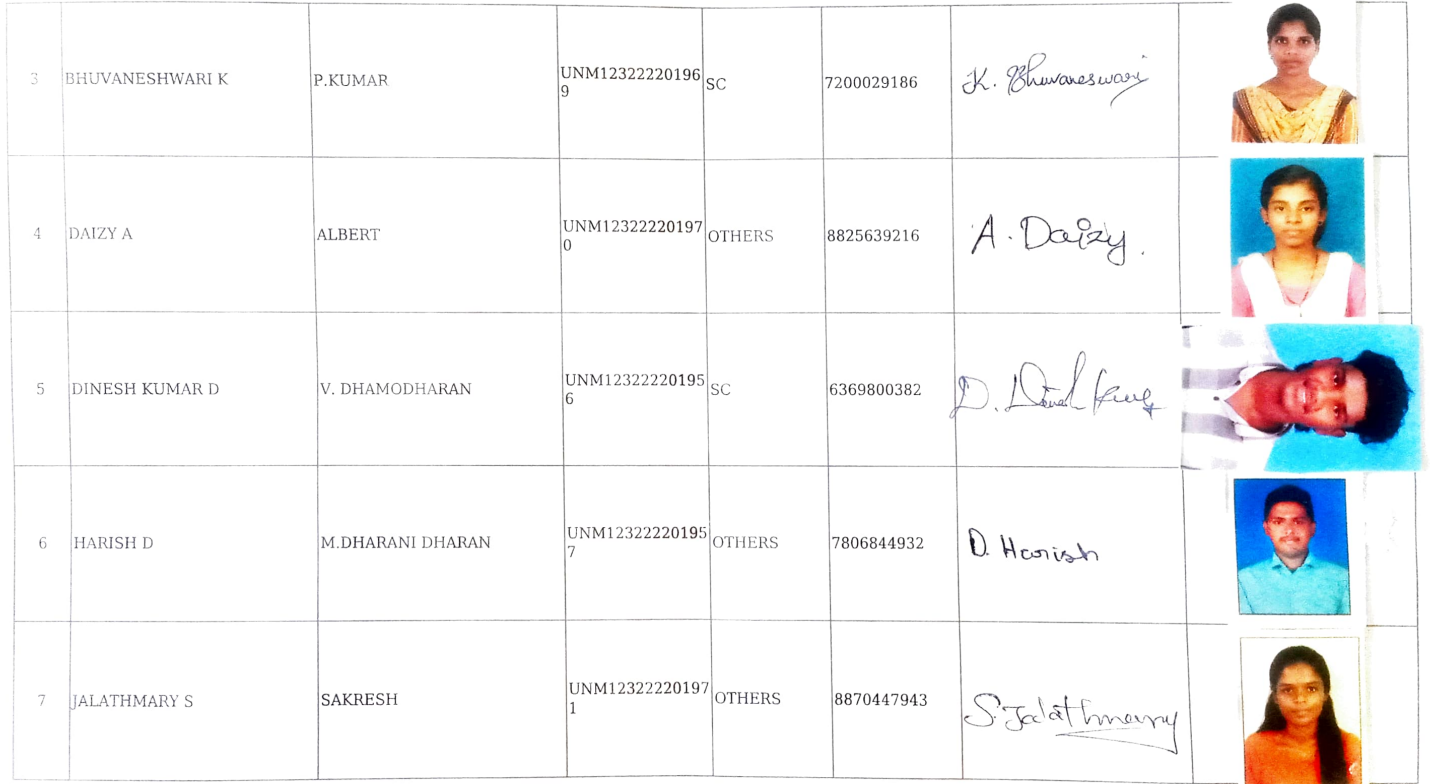 3 BHUVANESHWARI K P.KUMAR UNM12322220196 SC 7200029186 K. Bhuvaneswari
9
4 DAIZY A ALBERT UNM12322220197 OTHERS 8825639216 A. Daizy.
0
5 DINESH KUMAR D V. DHAMODHARAN UNM12322220195 SC 6369800382 D.
6
6 HARISH D M.DHARANI DHARAN UNM12322220195 OTHERS 7806844932 D. Harish
7
7 JALATHMARY S SAKRESH UNM12322220197 OTHERS 8870447943 S. Jalathmary
1